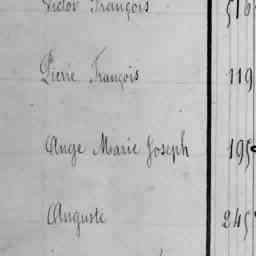 Victor François 516
Pierre François 119
Ange Marie Joseph 195
Auguste 245